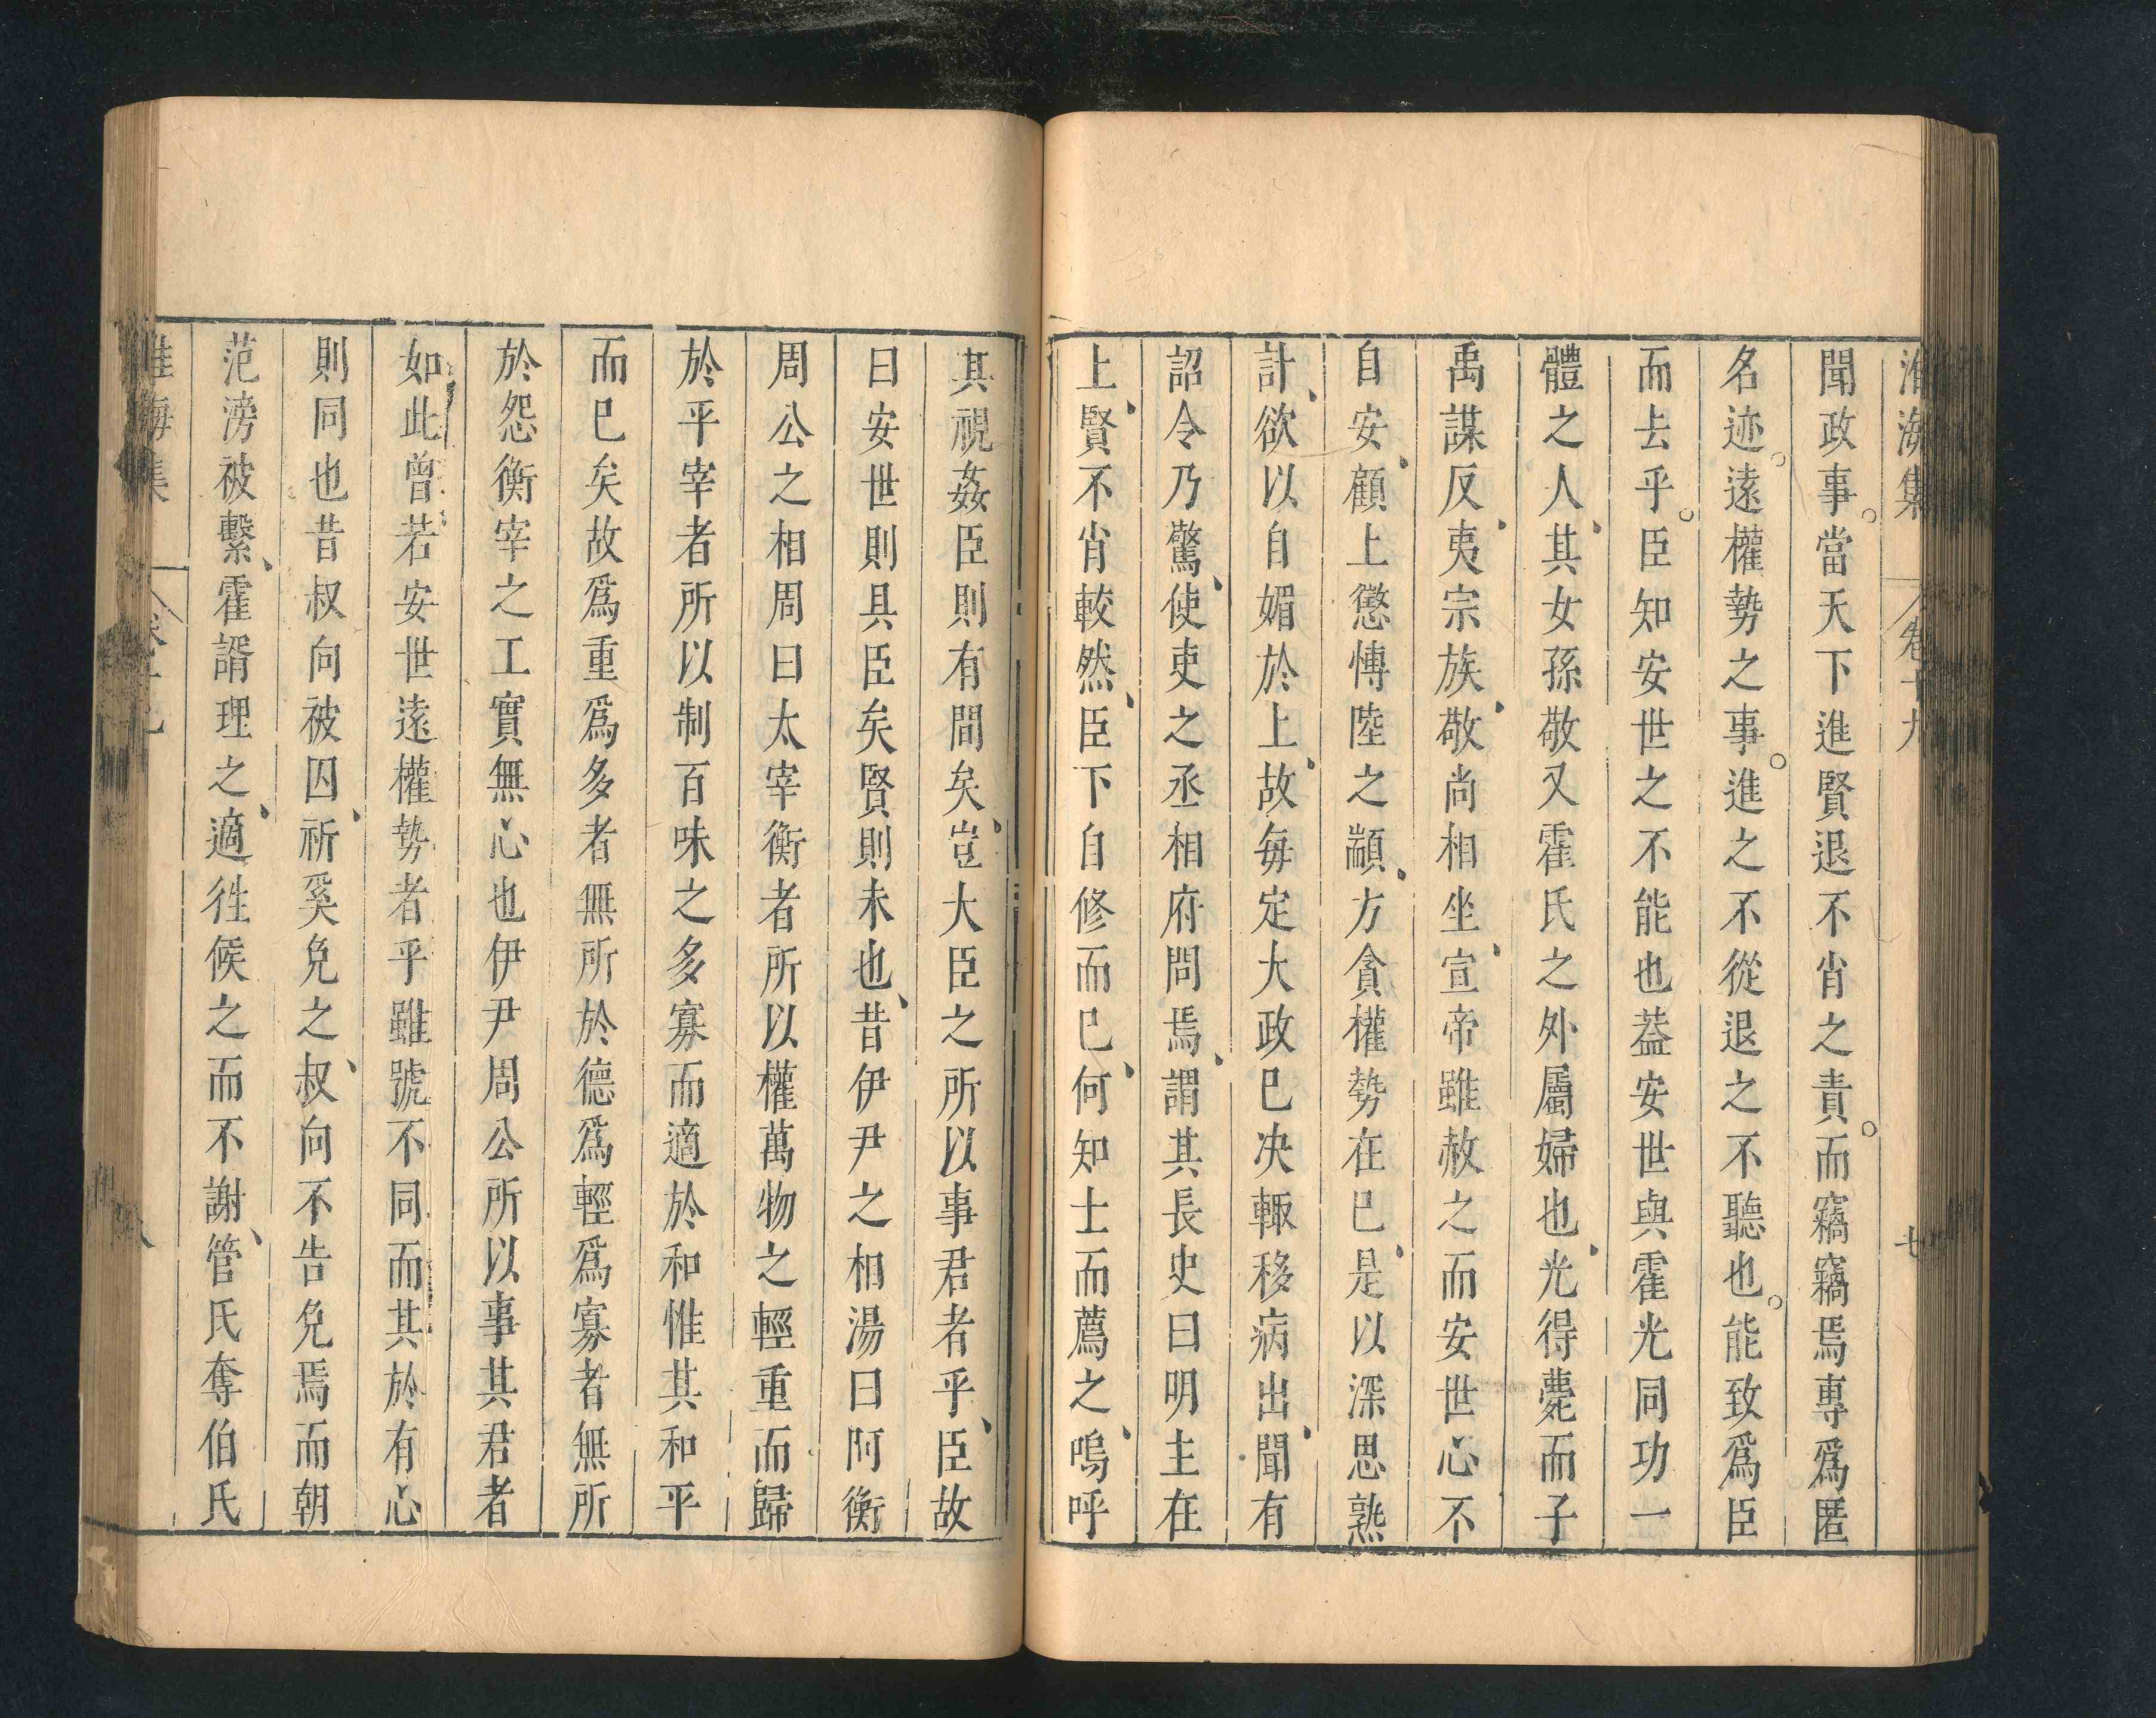 淮海集 卷十九 七
聞政事當天下進賢退不肖之責而竊竊焉專爲匿
名迹遠權勢之事進之不從退之不聽也能致爲臣
而去乎臣知安世之不能也葢安世與霍光同功一
體之人其女孫敬又霍氏之外屬婦也光得薨而子
禹謀反夷宗族敬尚相坐宣帝雖赦之而安世心不
自安顧上懲博陸之顓方貪權勢在已是以深思熟
計欲以自媚於上故每定大政已决輙移病出聞有
詔令乃驚使吏之丞相府問焉謂其長史曰明主在
上賢不肖較然臣下自修而已何知士而薦之嗚呼
其視姦臣則有間矣豈大臣之所以事君者乎臣故
曰安世則具臣矣賢則未也昔伊尹之相湯曰阿衡
周公之相周曰太宰衡者所以權萬物之輕重而歸
於平宰者所以制百味之多寡而適於和惟其和平
而已矣故爲重爲多者無所於德爲輕爲寡者無所
於怨衡宰之工實無心也伊尹周公所以事其君者
如此曾若安世遠權勢者乎雖號不同而其於有心
則同也昔叔向被囚祈奚免之叔向不告免焉而朝
范滂被繫霍諝理之適徃候之而不謝管氏奪伯氏
淮海集 卷十九 八